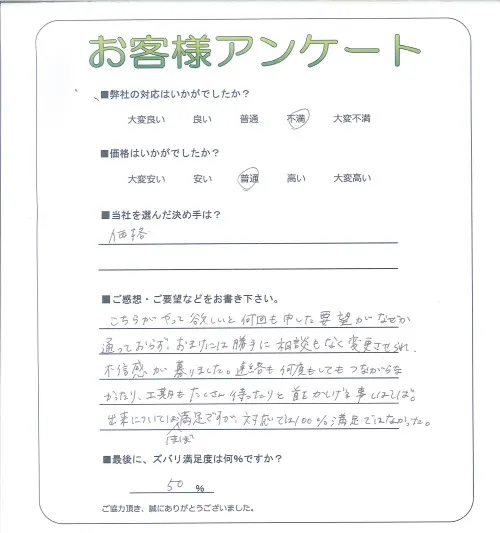 お客様アンケート
■弊社の対応はいかがでしたか？
大変良い 良い 普通 不満 大変不満
■価格はいかがでしたか？
大変安い 安い 普通 高い 大変高い
■当社を選んだ決め手は？
価格
■ご感想・ご要望などをお書き下さい。
こちらがやって欲しいと何回も申した要望がなぜか
通っておらず、おまけには勝手に相談もなく変更させられ、
不信感が募りました。連絡も何度もしてもつながらな
かったり、工期もたくさん待ったりと首をかしげる事しばしば。
出来についてはほぼ満足ですが、対応では100%満足ではなかった。
■最後に、ズバリ満足度は何％ですか？
50 %
ご協力頂き、誠にありがとうございました。